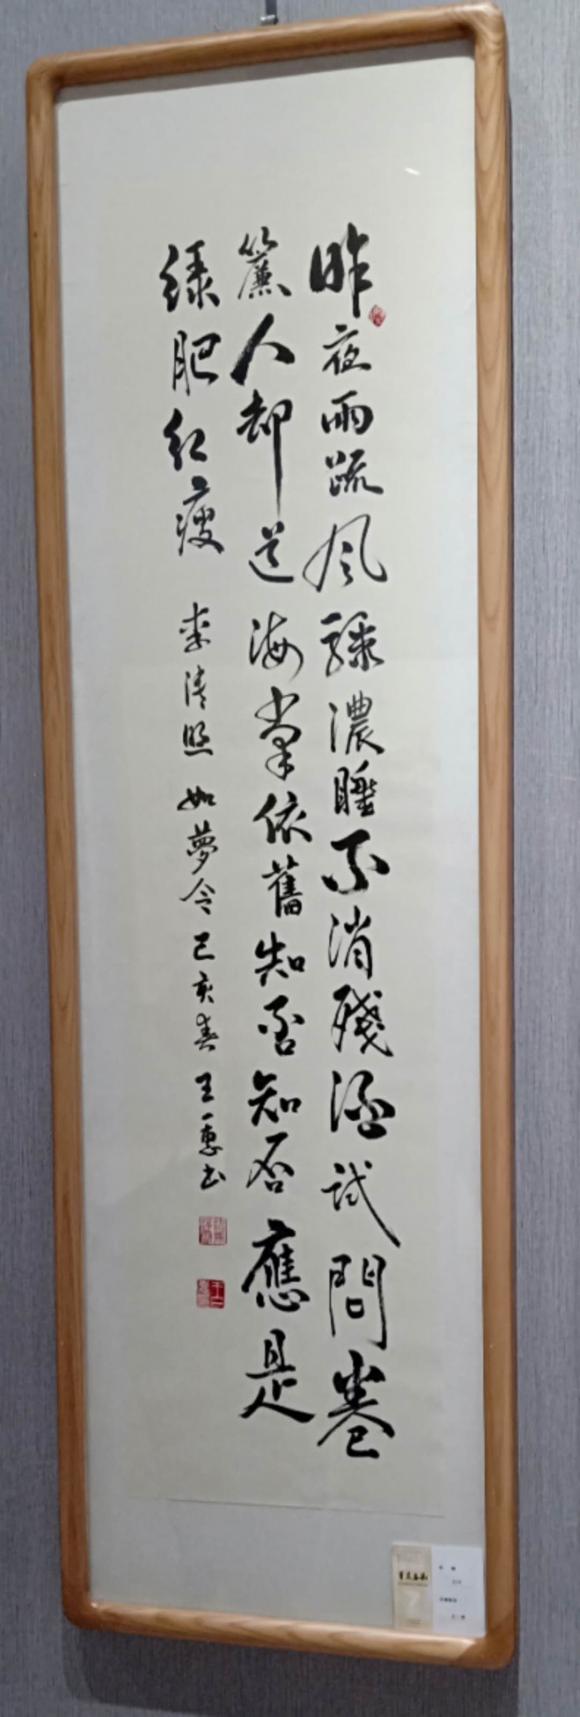 昨夜雨疏风骤濃睡不消殘酒試問卷
簾人却道海棠依舊知否知否應是
绿肥红瘦 李清照 如夢令 己亥春 王一惠书